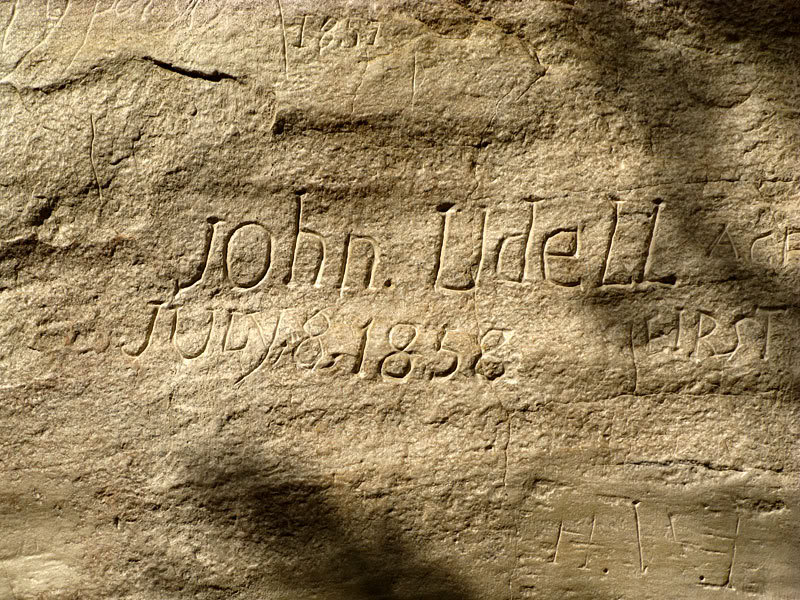 1857
John. Udell AGE
JULY, 8, 1858 FIRST